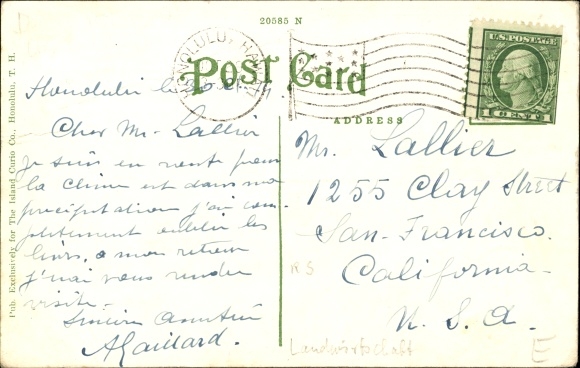 20585 N
Post Card
HONOLULU, HAWAII
U.S. POSTAGE
1 CENT 1
ADDRESS
Pub. Exclusively for The Island Curio Co., Honolulu, T. H.
Honolulu le
Cher Mr Lallier
je suis en route pour
la Chine et dans ma
précipitation j'ai com-
plètement oublié les
livres, à mon retour
j'irai vous rendre
visite.
Sincère amitié
A Gaillard.
Mr. Lallier
1255 Clay Street
San-Francisco.
California
U. S. A.
R S
Landwirtschaft
E